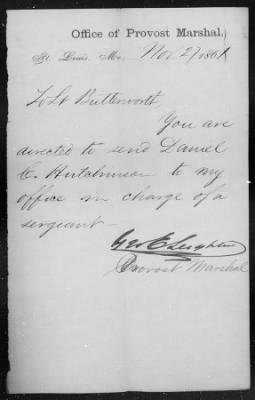 Office of Provost Marshal,
St. Louis, Mo., Nov 27 1861
To Lt Butterworth,
You are
directed to send Daniel
C. Hutchinson to my
office in charge of a
sergeant —
Geo E Leighton
Provost Marshal